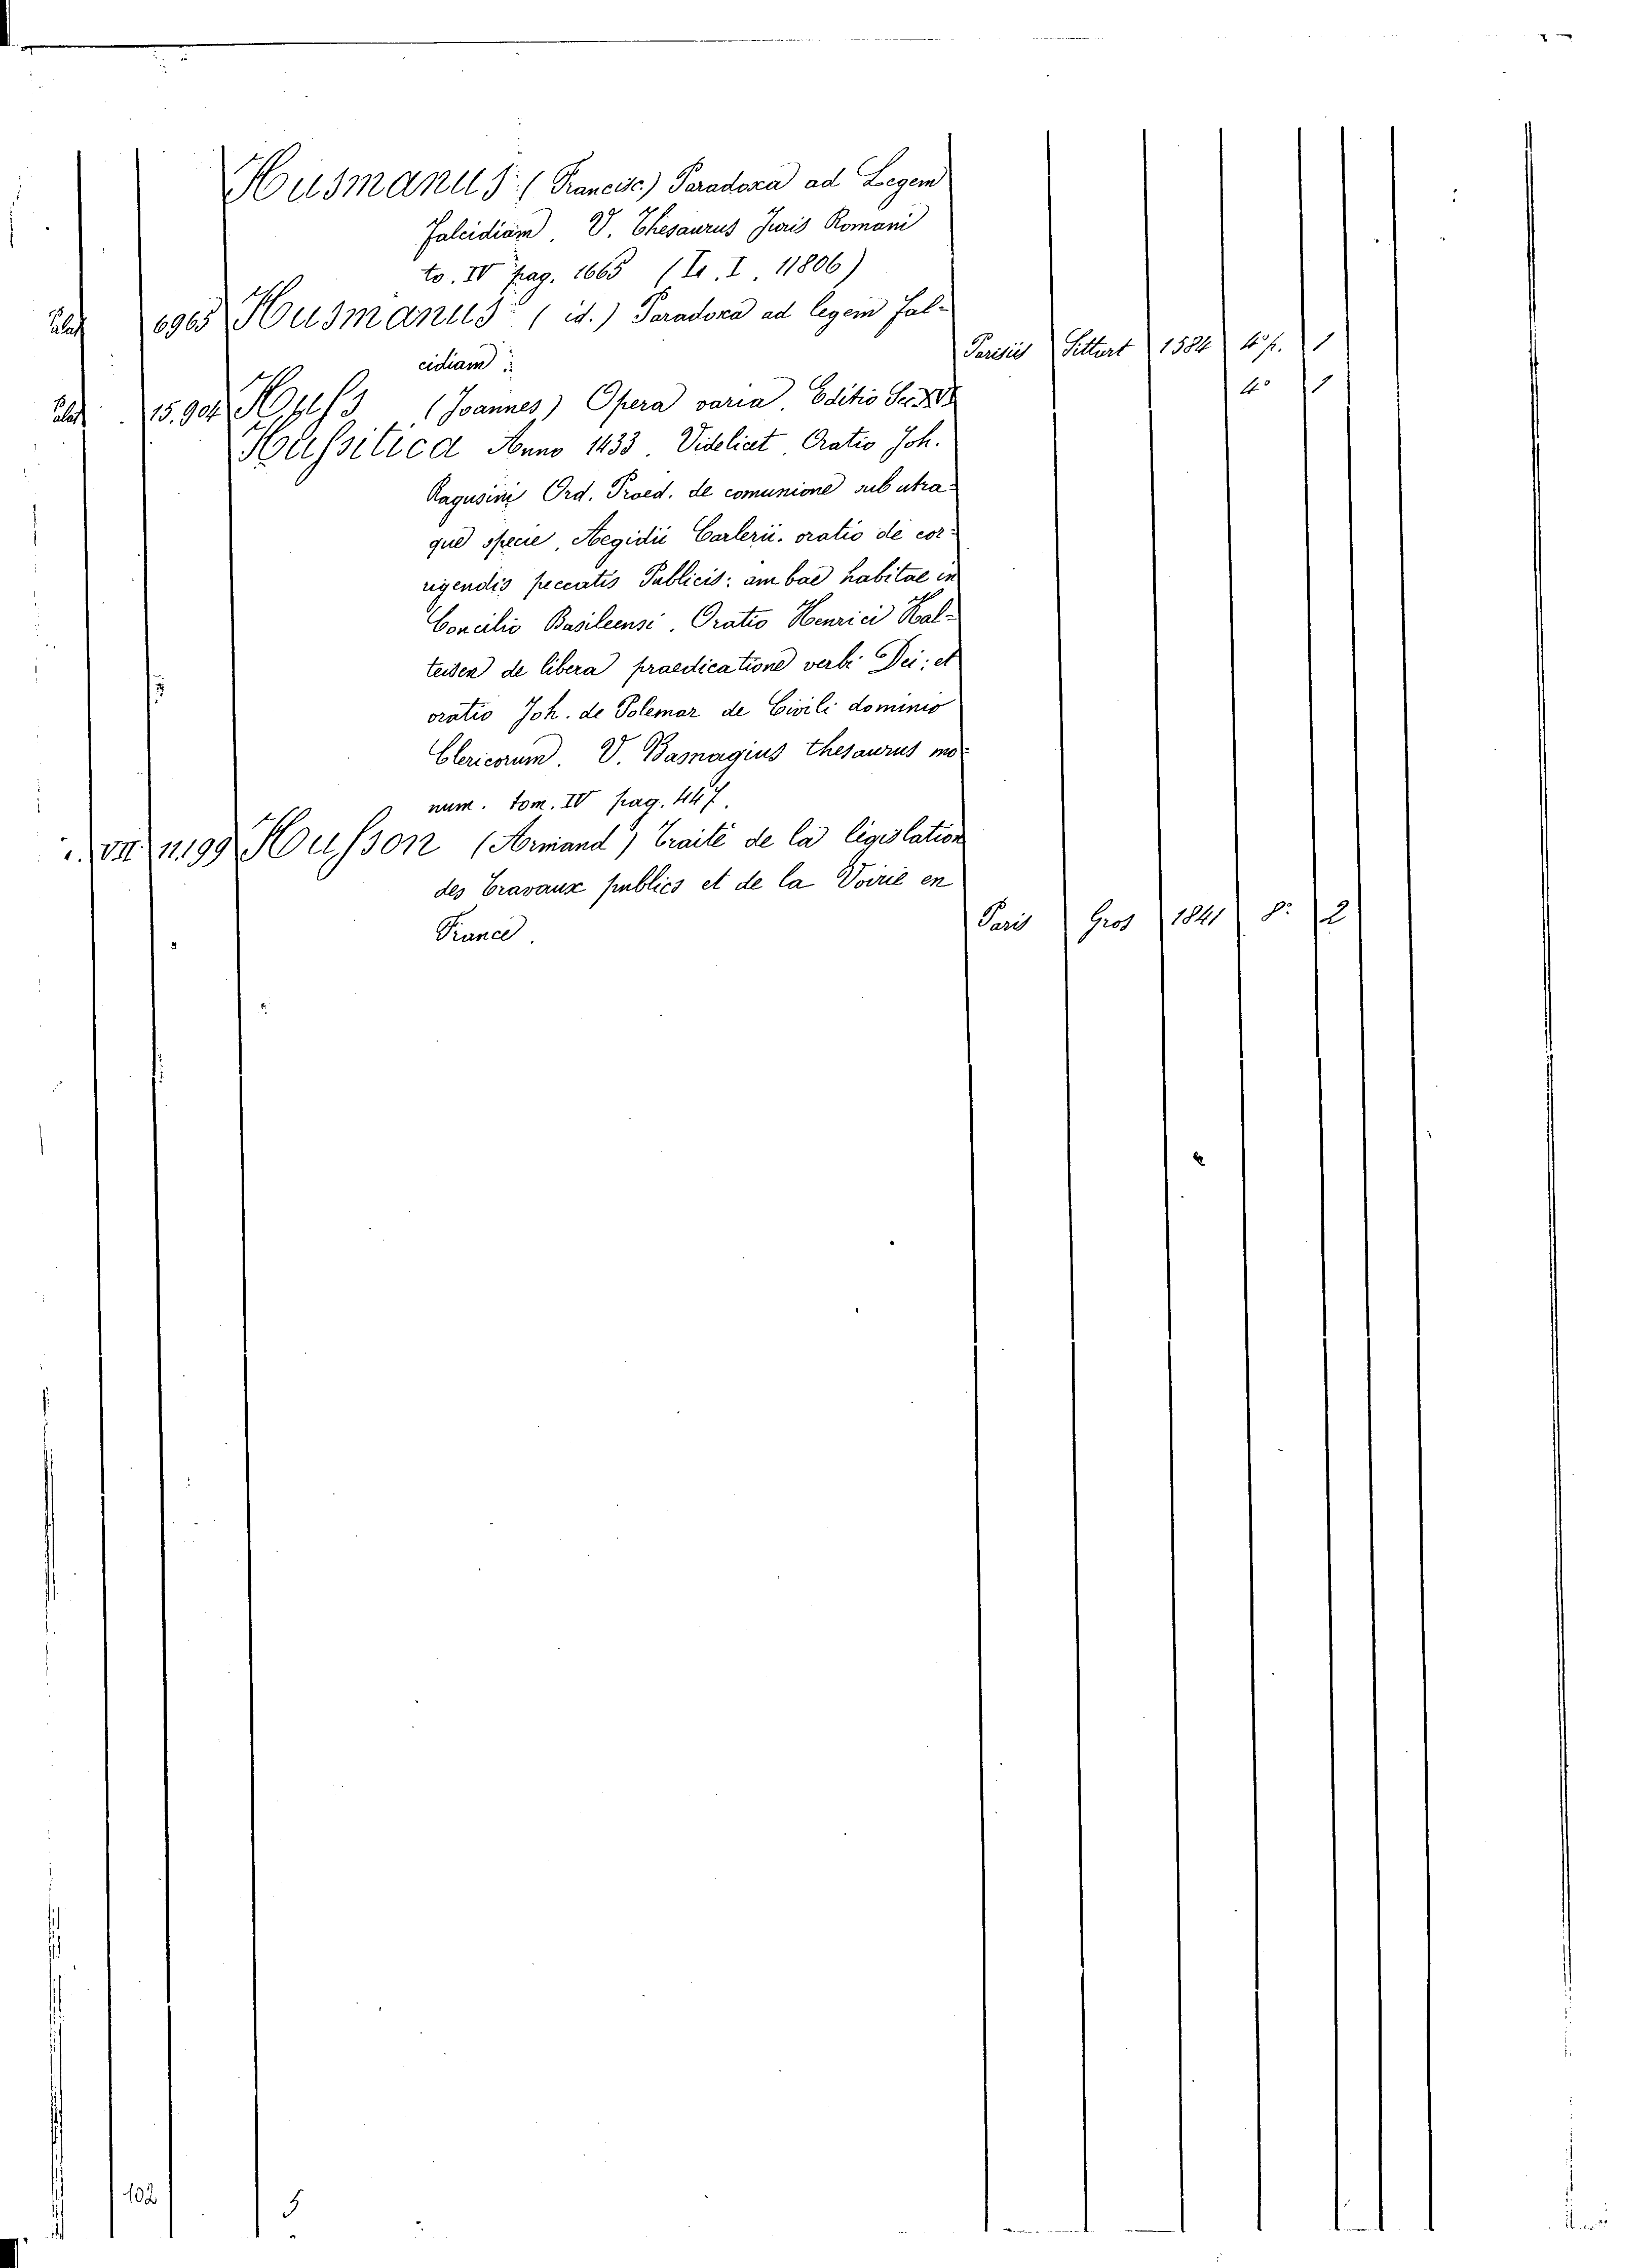 Husmanus (Francisc.) Paradoxa ad Legem
Falcidiam, V. Thesaurus Juris Romani
to. IV pag. 1665 (Tr. I. 11806)
6965 Husmanus (id.) Paradoxa ad legem Fal-
cidiam Parisiis Sittart 1584 4° p. 1
15.904 Huss (Joannes) Opera varia. Editio Sec. XVI 4° 1
Hussitica Anno 1433. Videlicet Oratio Joh.
Ragusini Ord. Proed. de comunione sub utra-
que specie, Aegidii Carlerii. oratio de cor-
rigendis peccatis Publicis: ambae habitae in
Concilio Basileensi. Oratio Henrici Kal-
teisen de libera praedicatione verbi Dei: et
oratio Joh. de Polemar de Civili dominio
Clericorum. V. Basnagius thesaurus mo-
num. tom. IV pag. 447.
VII 11.199 Husson (Armand) Traité de la législation
des Travaux publics et de la Voirie en
France. Paris Gros 1841 8° 2
102 5